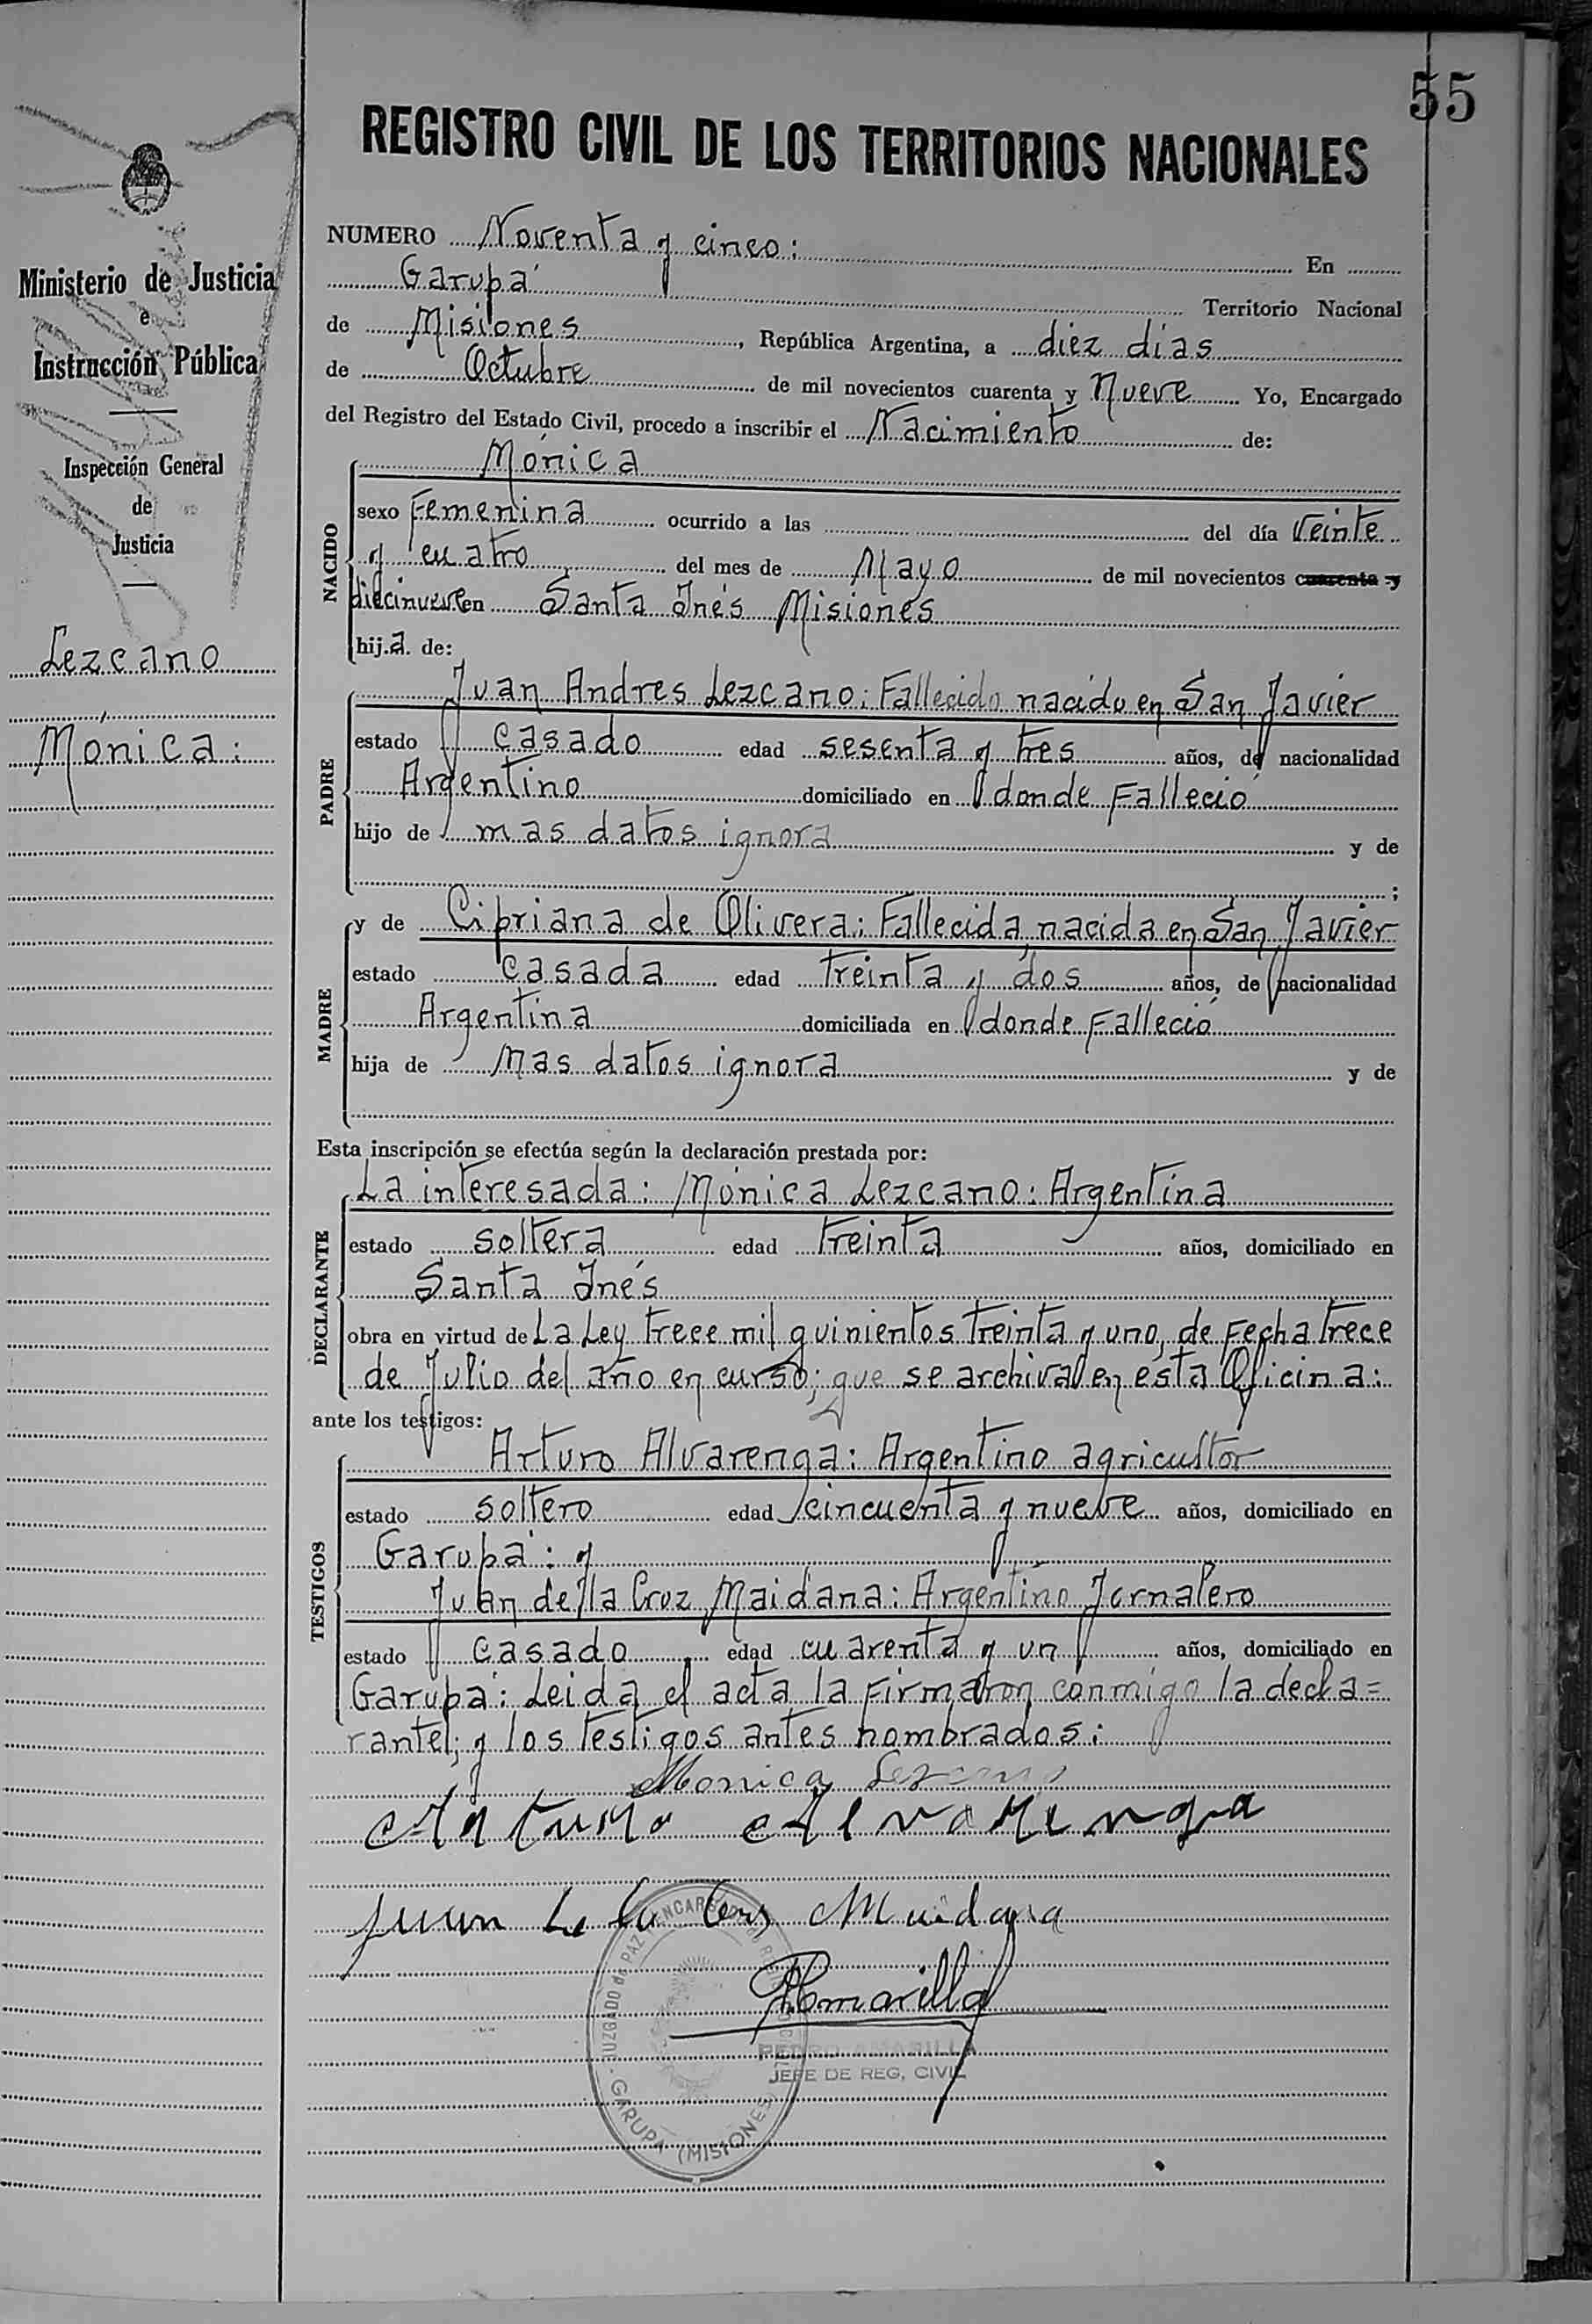 55
REGISTRO CIVIL DE LOS TERRITORIOS NACIONALES
Ministerio de Justicia
e
Instrucción Pública
Inspección General
de
Justicia
Lezcano
Mónica:
NUMERO Noventa y cinco: En
Garupá Territorio Nacional
de Misiones, República Argentina, a diez días
de Octubre de mil novecientos cuarenta y Nueve Yo, Encargado
del Registro del Estado Civil, procedo a inscribir el Nacimiento de:
Mónica
NACIDO
sexo Femenina ocurrido a las del día Veinte
y cuatro del mes de Mayo de mil novecientos cuarenta y
diecinueve en Santa Inés Misiones
hija de:
PADRE
Juan Andres Lezcano: Fallecido nacido en San Javier
estado Casado edad sesenta y tres años, de nacionalidad
Argentino domiciliado en donde Falleció
hijo de mas datos ignora y de
;
MADRE
y de Cipriana de Olivera: Fallecida nacida en San Javier
estado casada edad treinta y dos años, de nacionalidad
Argentina domiciliada en donde Falleció
hija de mas datos ignora y de
Esta inscripción se efectúa según la declaración prestada por:
DECLARANTE
La interesada: Mónica Lezcano: Argentina
estado soltera edad treinta años, domiciliado en
Santa Inés
obra en virtud de La Ley trece mil quinientos treinta y uno, de Fecha trece
de Julio del año en curso; que se archiva en esta Oficina:
ante los testigos:
TESTIGOS
Arturo Alvarenga: Argentino agricultor
estado soltero edad cincuenta y nueve años, domiciliado en
Garupá: y
Juan de la Cruz Maidana: Argentino Jornalero
estado casado edad cuarenta y un años, domiciliado en
Garupá: Leida el acta la Firmaron conmigo la decla=
rante; y los testigos antes nombrados:
Monica Lezcano
Arturo Alvarenga
Juan de la Cruz Maidana
PAmarilla
PEDRO AMARILLA
JEFE DE REG. CIVIL
JUZGADO de PAZ ENCARGADO
GARUPA (MISIONES)